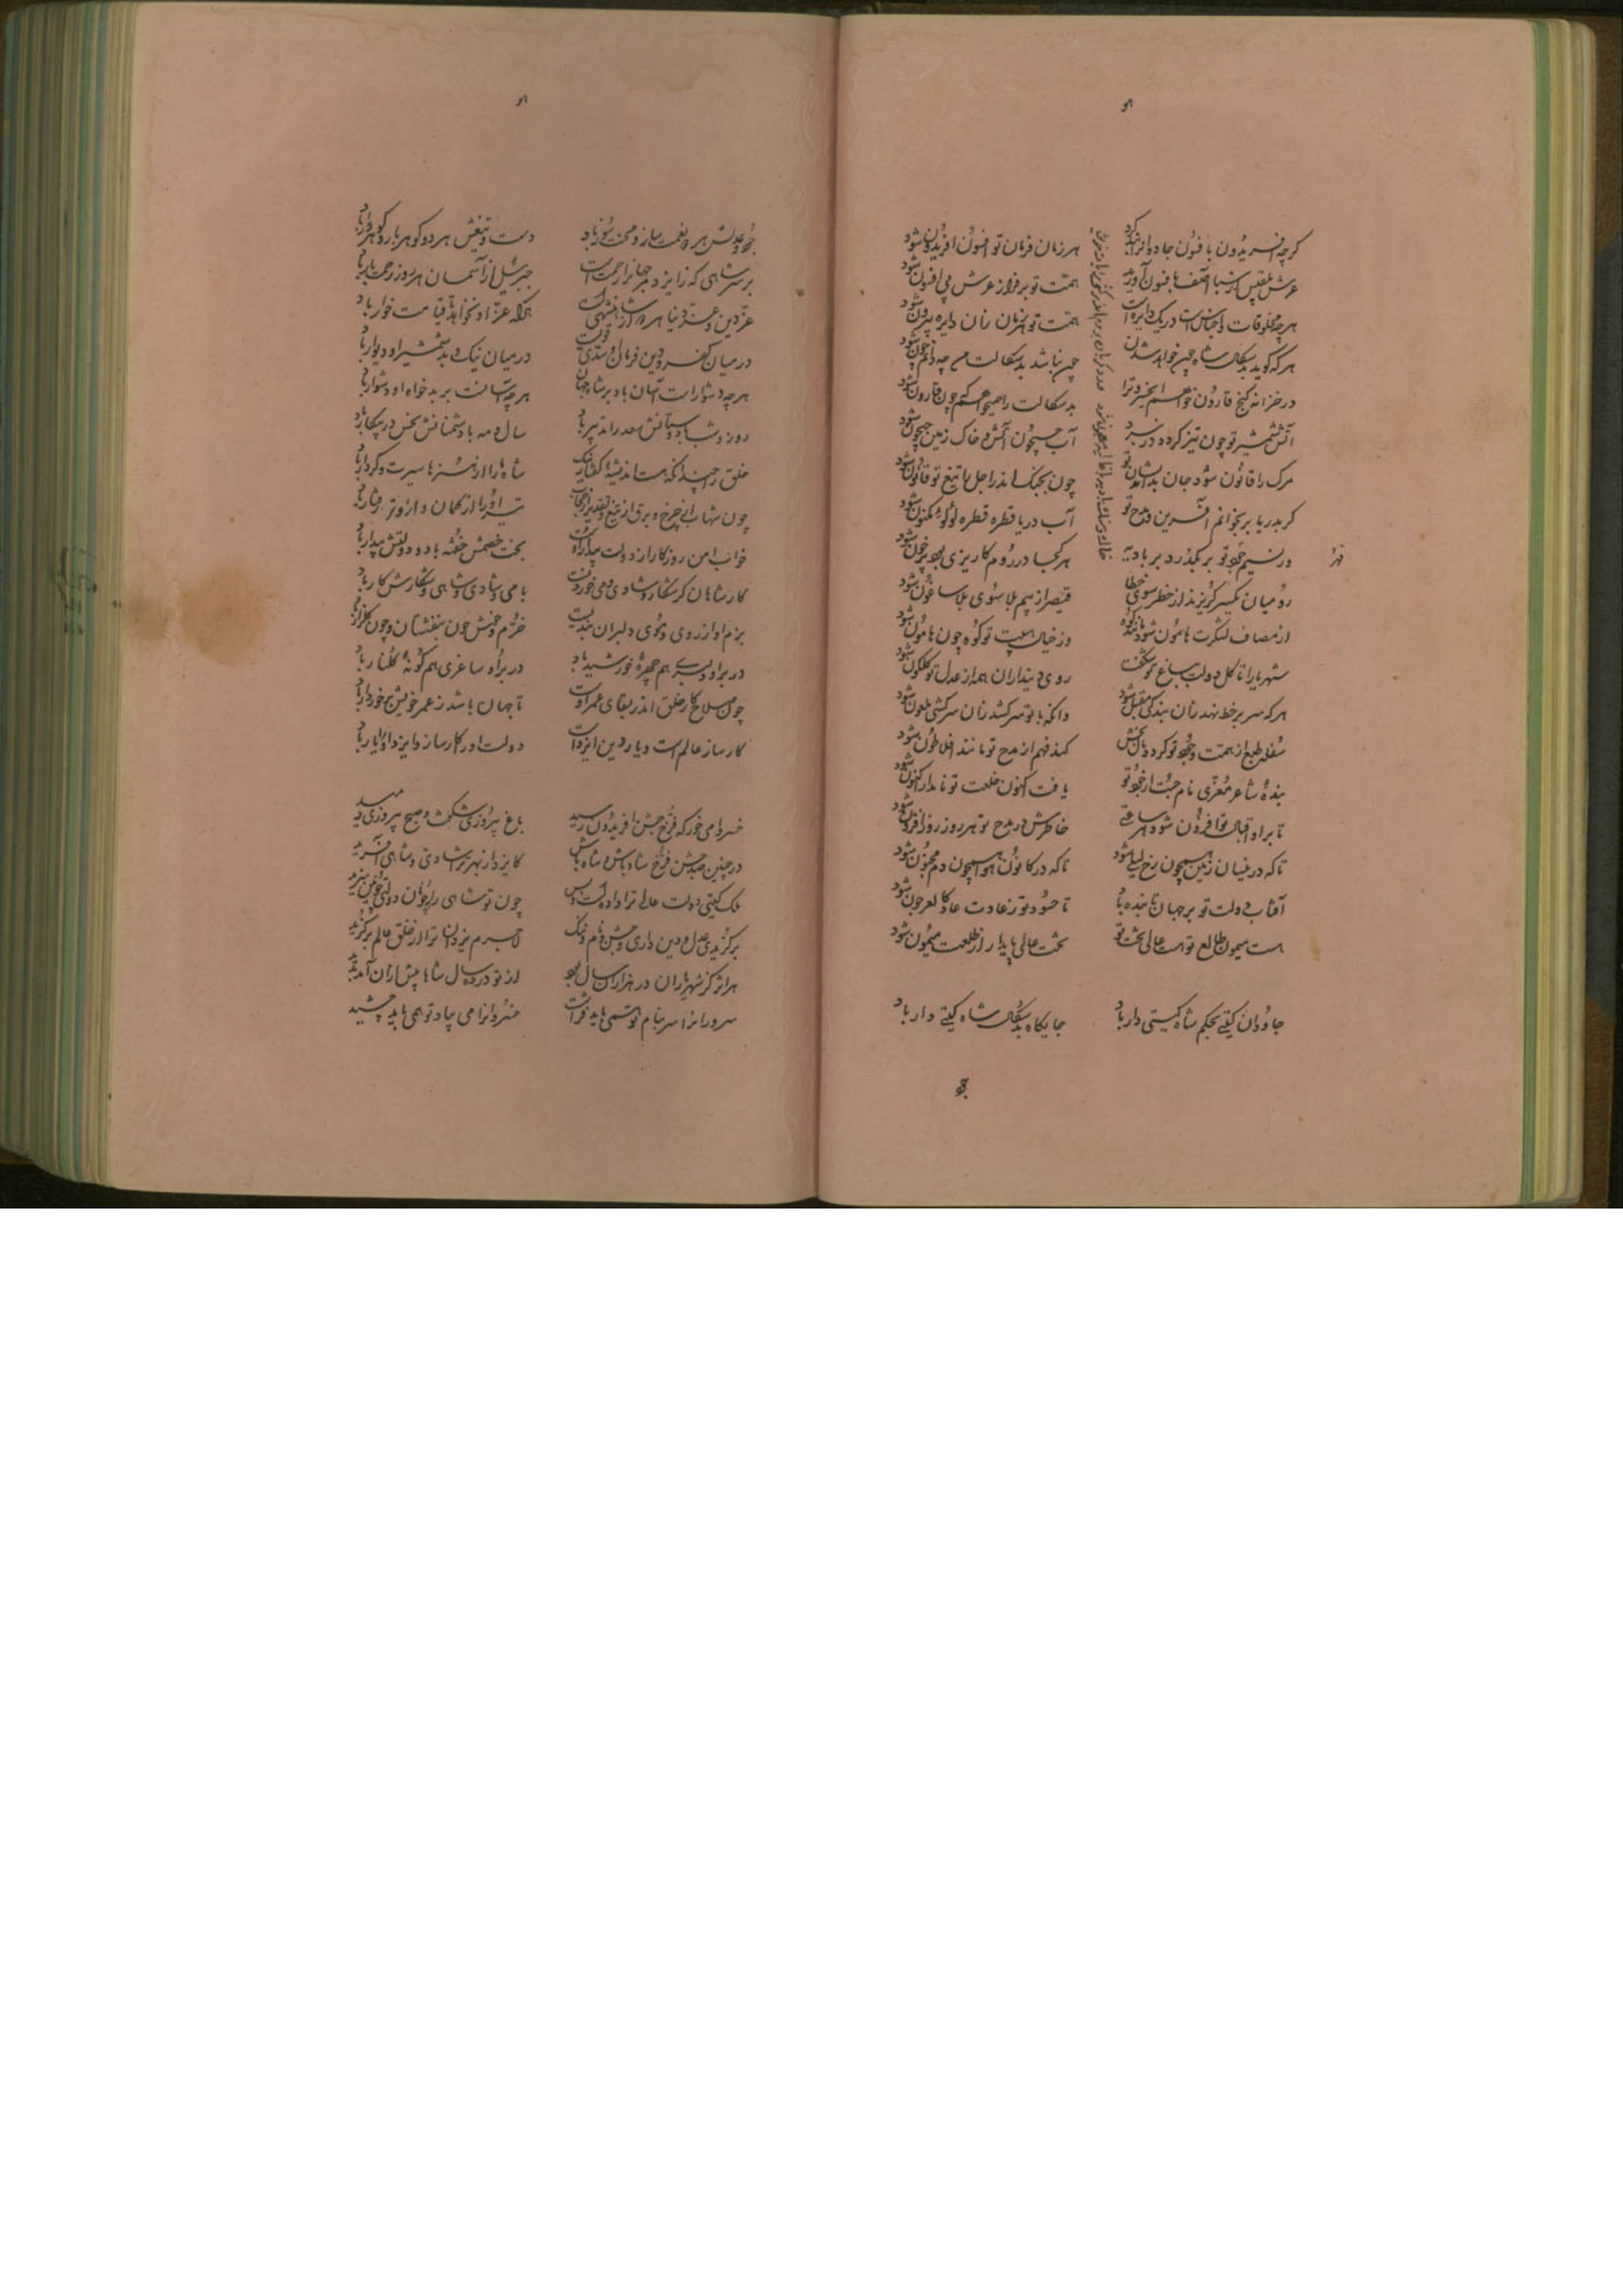 گرچه افریدون بافسون جادوانرا بند کرد هر زمان فرمان تو افسون افریدون شود
عرش بلقیس از سبا آصف بافسون آورید همت تو برفراز عرش بی افسون شود
هرچه مخلوقات و اجناس است در یک دایره است همت تو هر زمان زان دایره بیرون شود
هرکه گوید بدسگال شاه چین خواهد شدن چین نباشد بدسگالت من چه دانم چون شود
در خزانه گنج قارون خواهم ای خسرو ترا بدسگالت را همی خواهم که چون قارون شود
آتش شمشیر تو چون تیز گردد در نبرد آب جیحون آتش و خاک زمین جیحون شود
مرگ را قانون شود جان بداندیشان تو چون بجنگ اندر اجل با تیغ تو قانون شود
گر بدریا بر بخوانم آفرین و مدح تو آب دریا قطره قطره لولو مکنون شود
ور نسیم جود تو بر بگذرد بر بادیه
هر کجا در روم کاریزی بود پر خون شود
رومیان یکسر گریزند از خطر سوی خطا قیصر از بیم بلا سوی بلاساغون شود
از مصاف لشکرت هامون شود مانند کوه وز خیال هیبت تو کوه چون هامون شود
شهریارا تا گل دولت بباغ تو شکفت روی دینداران همه از عدل تو گلگون شود
هرکه سر بر خط نهد زان بندگی مقبل شود وانکه با تو سر کشد زان سرکشی ملعون شود
سفله طبع از همت و جود تو گردد مال بخش کند فهم از مدح تو مانند افلاطون شود
بنده شاعر معزی نام جست از جود تو یافت اکنون خلعت تو نامدار اکنون شود
تا بر او اقبال تو افزون شود هر ساعتی خاطرش در مدح تو هر روز روز افزون شود
تا که در نیسان زمین همچون رخ لیلی شود تا که در کانون هوا همچون دم مجنون شود
آفتاب دولت تو بر جهان تابنده باد تا حسود تو ز عادت عاد کالعرجون شود
هست میمون طالع تو هست عالی بخت تو بخت عالی پایدار از طلعت میمون شود
جاودان گیتی بحکم شاه گیتی دار باد جایگاه بدسگال شاه گیتی دار باد
جود
جود و عدلش هر دو نعمت ساز و محنت سوز باد دست و تیغش هر دو گوهربار و گوهردار باد
بر سر شاهی که از ایزد جهانرا رحمت است جبرئیل از آسمان هر روز رحمت بار باد
عز دین و عز دنیا هر دو از شاهنشهی است هرکه عز او نخواهد تا قیامت خوار باد
در میان کفر و دین فرمان او سدی قویست در میان نیک و بد شمشیر او دیوار باد
هرچه دشوار است آسان باد بر شاه جهان هرچه آسانست بر بدخواه او دشوار باد
روز و شب با دوستانش سعد را تدبیر باد سال و مه با دشمنانش نحس در پیکار باد
خلق را چندانکه هست اندیشه گفتار نیک شاه ما را از هنرها سیرت و کردار باد
خواب امن روزگار از دولت بیدار اوست بخت خصمش خفته باد و دولتش بیدار باد
کار شاهان گر شکار و شادی و می خوردنست با می و شادی و شاهی و شکارش کار باد
بزم او از روی و موی دلبران خندیست خرم و خوش چون بنفشستان و چون گلزار باد
در بر او دلبری هم چهره خورشید باد در بر او ساغری هم گونه گلنار باد
چون صلاح کار خلق اندر بقای عمر اوست تا جهان باشد ز عمر خویش برخوردار باد
کارساز عالم است و یار دین ایزدست دولت او را کارساز و ایزد او را یار باد
خسروا می خور که فرخ جشن افریدون رسید باغ پیروزی شکفت و صبح پیروزی دمید
در چنین جشن فرخ شاد باش و شاه باش کایزد از بهر تو شادی و شاهی آفرید
ملک گیتی دولت عالی ترا داده است و بس چون تو شاهی را چونان دولتی چونین سزید
برگزیدی عدل و دین داری و جستی نام و ننگ لاجرم یزدان ترا از خلق عالم برگزید
هر اثر کز شهریاران در هزاران سال بود از تو در ده سال شاها بیش از آن آمد پدید
سرورانرا سر بنام تو همی باید فراشت خسروانرا می بیاد تو همی باید چشید